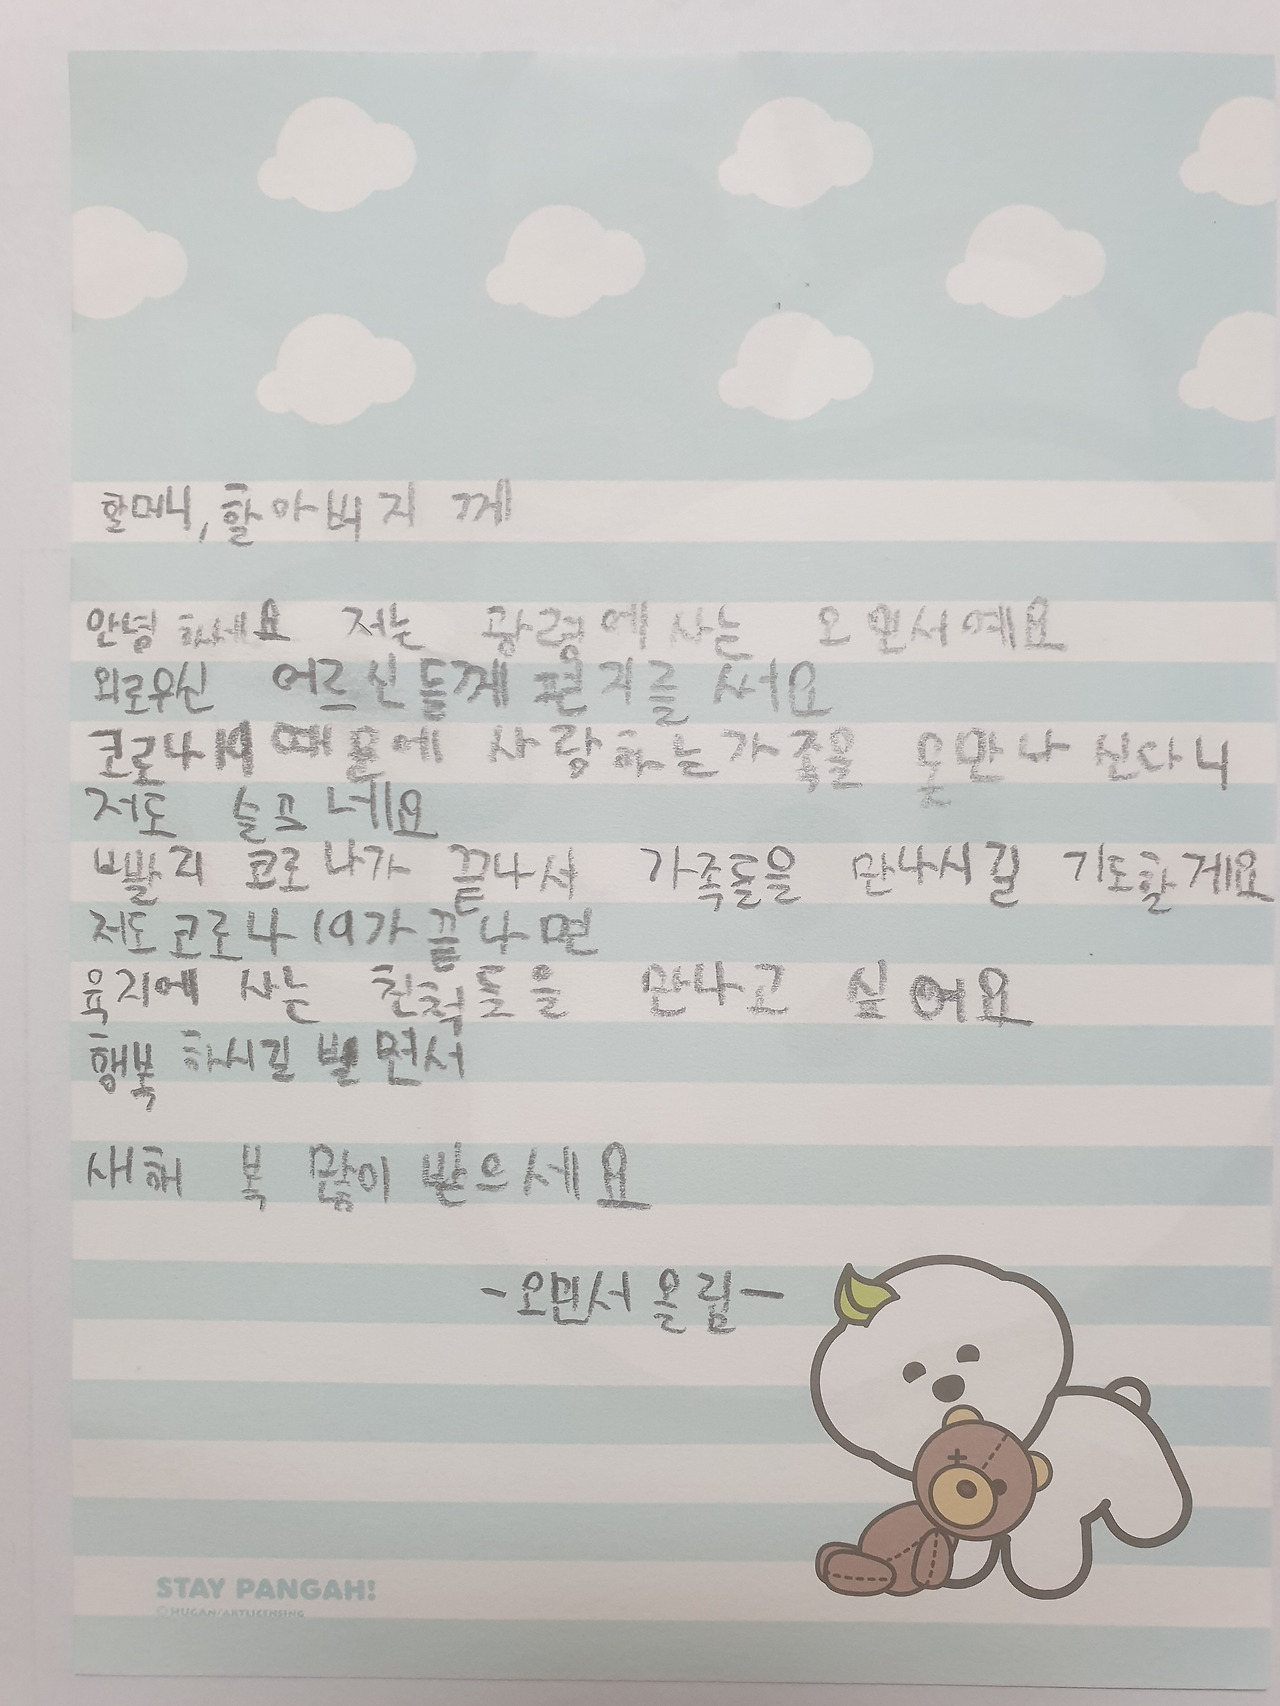 할머니, 할아버지 께
안녕하세요 저는 광령에 사는 오민서예요
외로우신 어르신들께 편지를 써요
코로나19 때문에 사랑하는 가족을 못만나 신다니
저도 슬프네요
빨리 코로나가 끝나서 가족들을 만나시길 기도할게요
저도 코로나19가 끝나면
육지에 사는 친척들을 만나고 싶어요
행복 하시길 빌면서
새해 복 많이 받으세요
-오민서 올림-
STAY PANGAH!
©MUGAN/ARTLICENSING